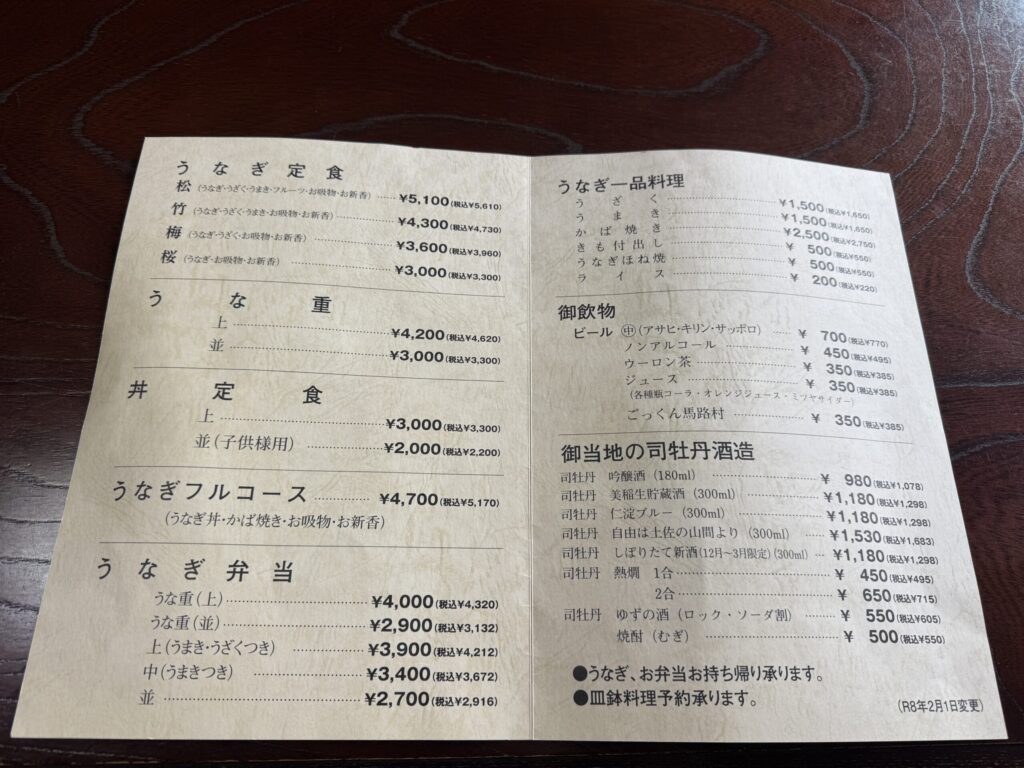 うなぎ定食
松 (うなぎ・うざく・うまき・フルーツ・お吸物・お新香) ¥5,100(税込¥5,610)
竹 (うなぎ・うざく・うまき・お吸物・お新香) ¥4,300(税込¥4,730)
梅 (うなぎ・うざく・お吸物・お新香) ¥3,600(税込¥3,960)
桜 (うなぎ・お吸物・お新香) ¥3,000(税込¥3,300)
うな重
上 ¥4,200(税込¥4,620)
並 ¥3,000(税込¥3,300)
丼定食
上 ¥3,000(税込¥3,300)
並(子供様用) ¥2,000(税込¥2,200)
うなぎフルコース ¥4,700(税込¥5,170)
(うなぎ丼・かば焼き・お吸物・お新香)
うなぎ弁当
うな重(上) ¥4,000(税込¥4,320)
うな重(並) ¥2,900(税込¥3,132)
上(うまき・うざくつき) ¥3,900(税込¥4,212)
中(うまきつき) ¥3,400(税込¥3,672)
並 ¥2,700(税込¥2,916)
うなぎ一品料理
うざく ¥1,500(税込¥1,650)
うまき ¥1,500(税込¥1,650)
かば焼き ¥2,500(税込¥2,750)
きも付出し ¥500(税込¥550)
うなぎほね焼 ¥500(税込¥550)
ライス ¥200(税込¥220)
御飲物
ビール ㊥(アサヒ・キリン・サッポロ) ¥700(税込¥770)
ノンアルコール ¥450(税込¥495)
ウーロン茶 ¥350(税込¥385)
ジュース ¥350(税込¥385)
(各種瓶コーラ・オレンジジュース・ミツヤサイダー)
ごっくん馬路村 ¥350(税込¥385)
御当地の司牡丹酒造
司牡丹 吟醸酒(180ml) ¥980(税込¥1,078)
司牡丹 美稲生貯蔵酒(300ml) ¥1,180(税込¥1,298)
司牡丹 仁淀ブルー(300ml) ¥1,180(税込¥1,298)
司牡丹 自由は土佐の山間より(300ml) ¥1,530(税込¥1,683)
司牡丹 しぼりたて新酒(12月〜3月限定)(300ml) ¥1,180(税込¥1,298)
司牡丹 熱燗 1合 ¥450(税込¥495)
2合 ¥650(税込¥715)
司牡丹 ゆずの酒(ロック・ソーダ割) ¥550(税込¥605)
焼酎(むぎ) ¥500(税込¥550)
●うなぎ、お弁当お持ち帰り承ります。
●皿鉢料理予約承ります。
(R8年2月1日変更)